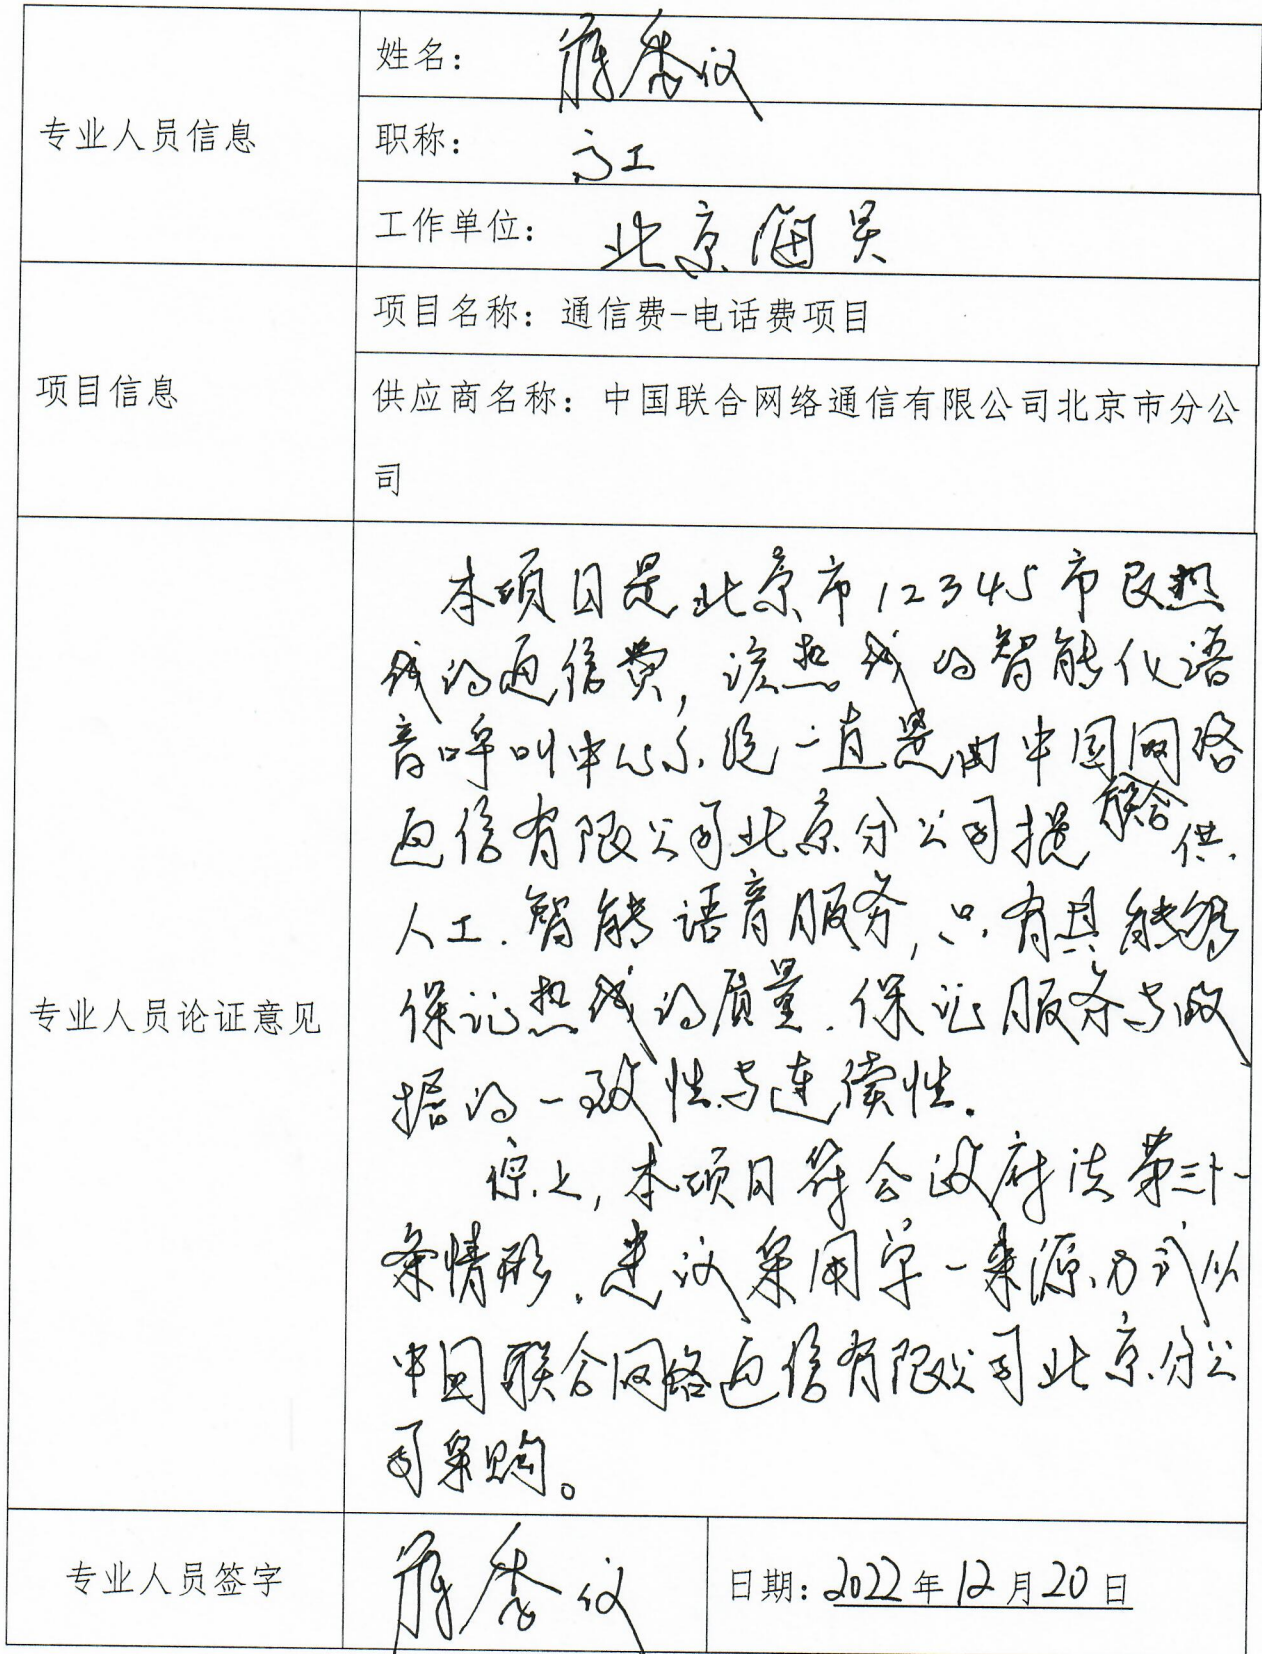 专业人员信息
姓名：
职称：高工
工作单位：北京
项目信息
项目名称：通信费-电话费项目
供应商名称：中国联合网络通信有限公司北京市分公
司
专业人员论证意见
本项目是北京市12345市民热
线的通信费，该热线的智能化语
音呼叫中心系统一直是由中国网络
联合
通信有限公司北京分公司提供.
人工.智能语音服务,只有其能够
保证热线的质量.保证服务与数
据的一致性与连续性.
综上,本项目符合政府法第三十一
条情形.建议采用单一来源方式从
中国联合网络通信有限公司北京分公
司采购。
专业人员签字
日期：2022年12月20日